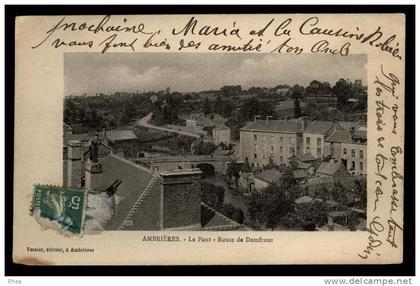 prochaine Maria et la Causine
vous font bien des amitié ton Oncle
qui vous Embrasse
les trois de tout
AMBRIÈRES. - Le Pont - Route de Domfront
Tessier, éditeur, à Ambrières
www.delcampe.net